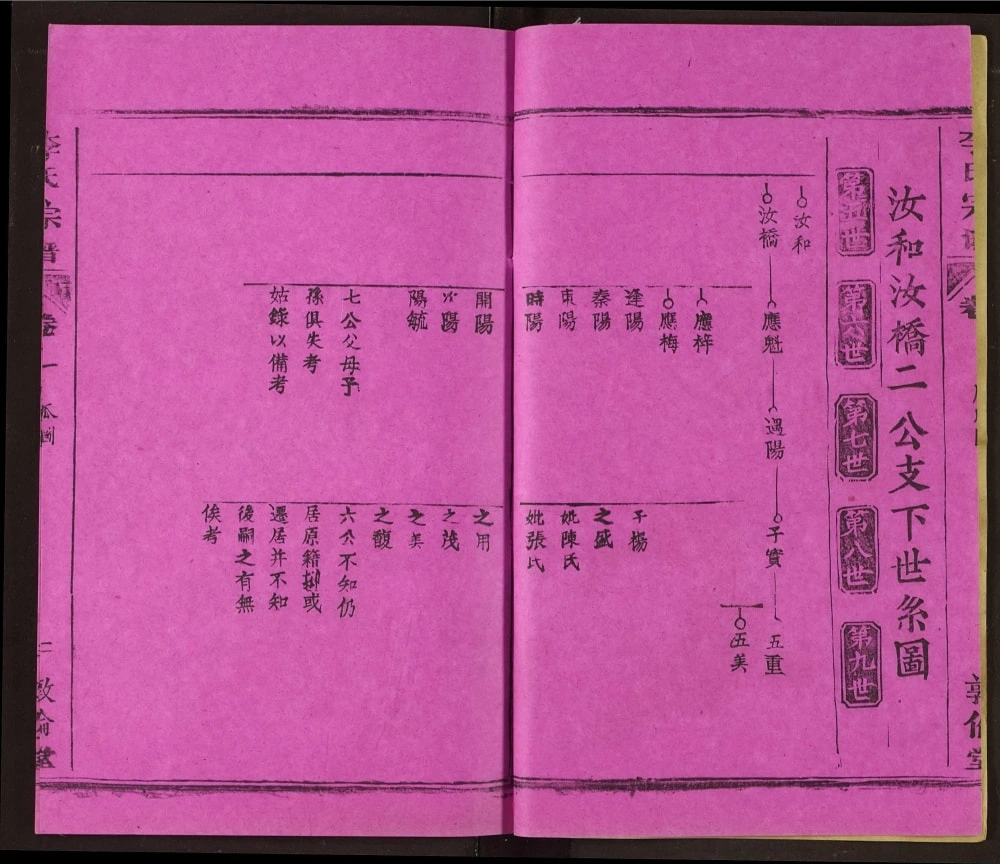 汝和汝橋二公支下世系圖
第五世
第六世
第七世
第八世
第九世
汝和
汝橋
應魁
遇陽
子實
五重
五美
應梓
應梅
逢陽
秦陽
東陽
時陽
開陽
陽毓
七公父母子
孫俱失考
姑錄以備考
子楊
之盛
妣陳氏
妣張氏
之用
之茂
之美
之馥
六公不知仍
居原籍抑或
遷居并不知
後嗣之有無
俟考
李氏宗譜
卷一
二
敦倫堂